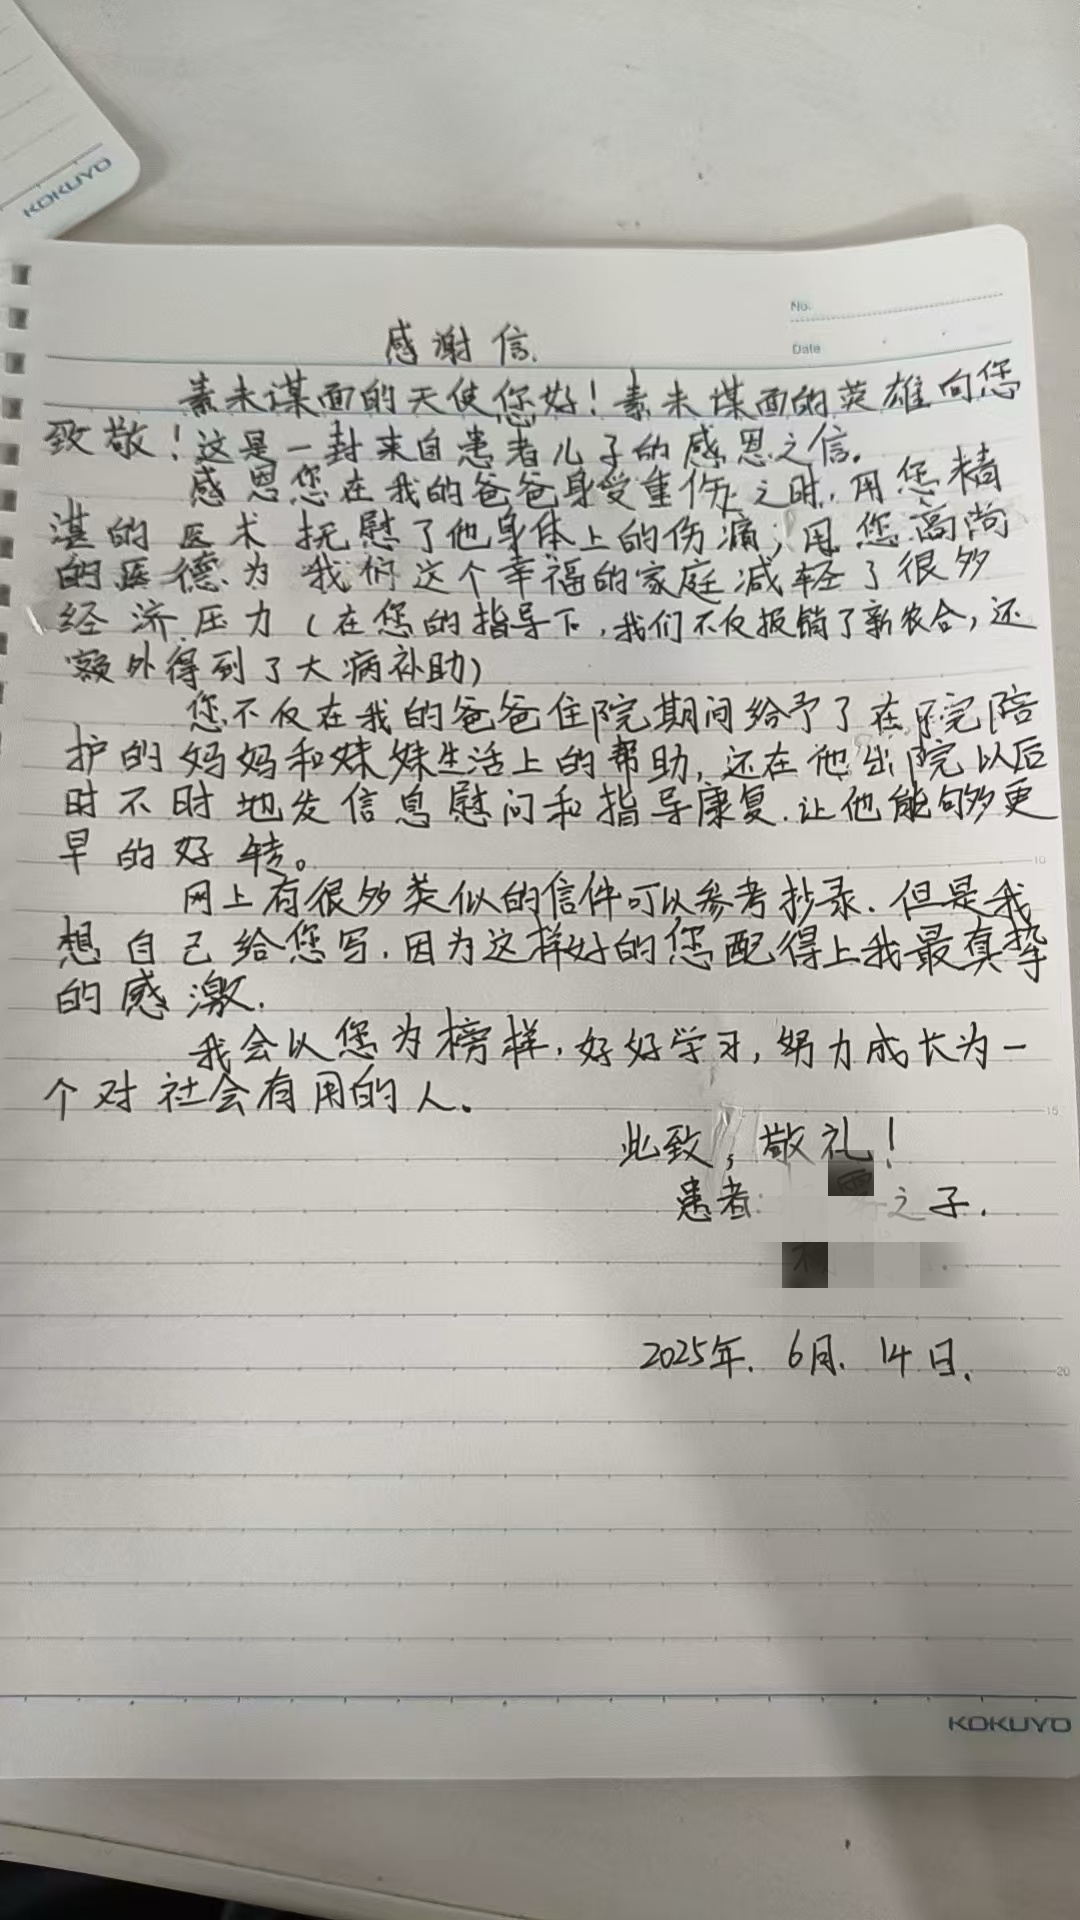 KOKUYO
No.
Date
感谢信.
素未谋面的天使您好！素未谋面的英雄向您
致敬！这是一封来自患者儿子的感恩之信。
感恩您在我的爸爸身受重伤之时，用您精
湛的医术抚慰了他身体上的伤痛；用您高尚
的医德为我们这个幸福的家庭减轻了很多
经济压力（在您的指导下，我们不仅报销了新农合，还
额外得到了大病补助）
您不仅在我的爸爸住院期间给予了在院陪
护的妈妈和妹妹生活上的帮助，还在他出院以后
时不时地发信息慰问和指导康复.让他能够更
早的好转。
10
网上有很多类似的信件可以参考抄录.但是我
想自己给您写.因为这样好的您配得上我最真挚
的感激.
我会以您为榜样.好好学习，努力成长为一
个对社会有用的人。
15
此致，敬礼！
患者: 之子.
2025年.6月.14日.
20
KOKUYO